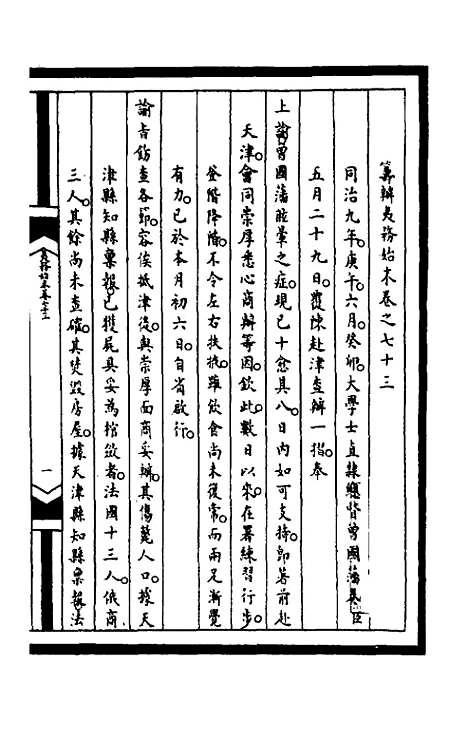 籌辦夷務始末卷之七十三
同治九年庚午六月癸卯大學士直隸總督曾國藩奏臣
五月二十九日覆陳赴津查辦一摺奉
上諭曾國藩眩暈之症現已十愈其八日內如可支持即著前赴
天津會同崇厚悉心商辦等因欽此數日以來在署練習行步
登階降階不令左右扶掖雖飲食尚未復常而兩足漸覺
有力已於本月初六日自省啟行
諭旨飭查各節容俟抵津後與崇厚面商妥辦其傷斃人口據天
津縣知縣稟報已獲屍具妥為棺斂者法國十三人俄商
三人其餘尚未查確其焚毀房屋據天津縣知縣稟報法
夷務始末卷七十三
一